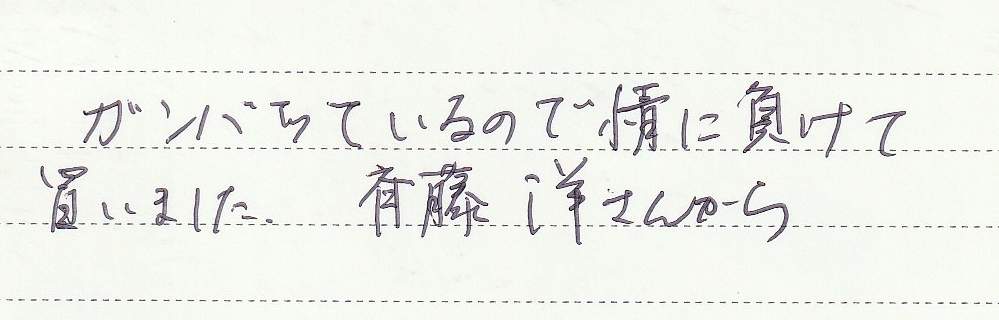 ガンバッているので情に負けて
買いました. 斉藤 洋さんから